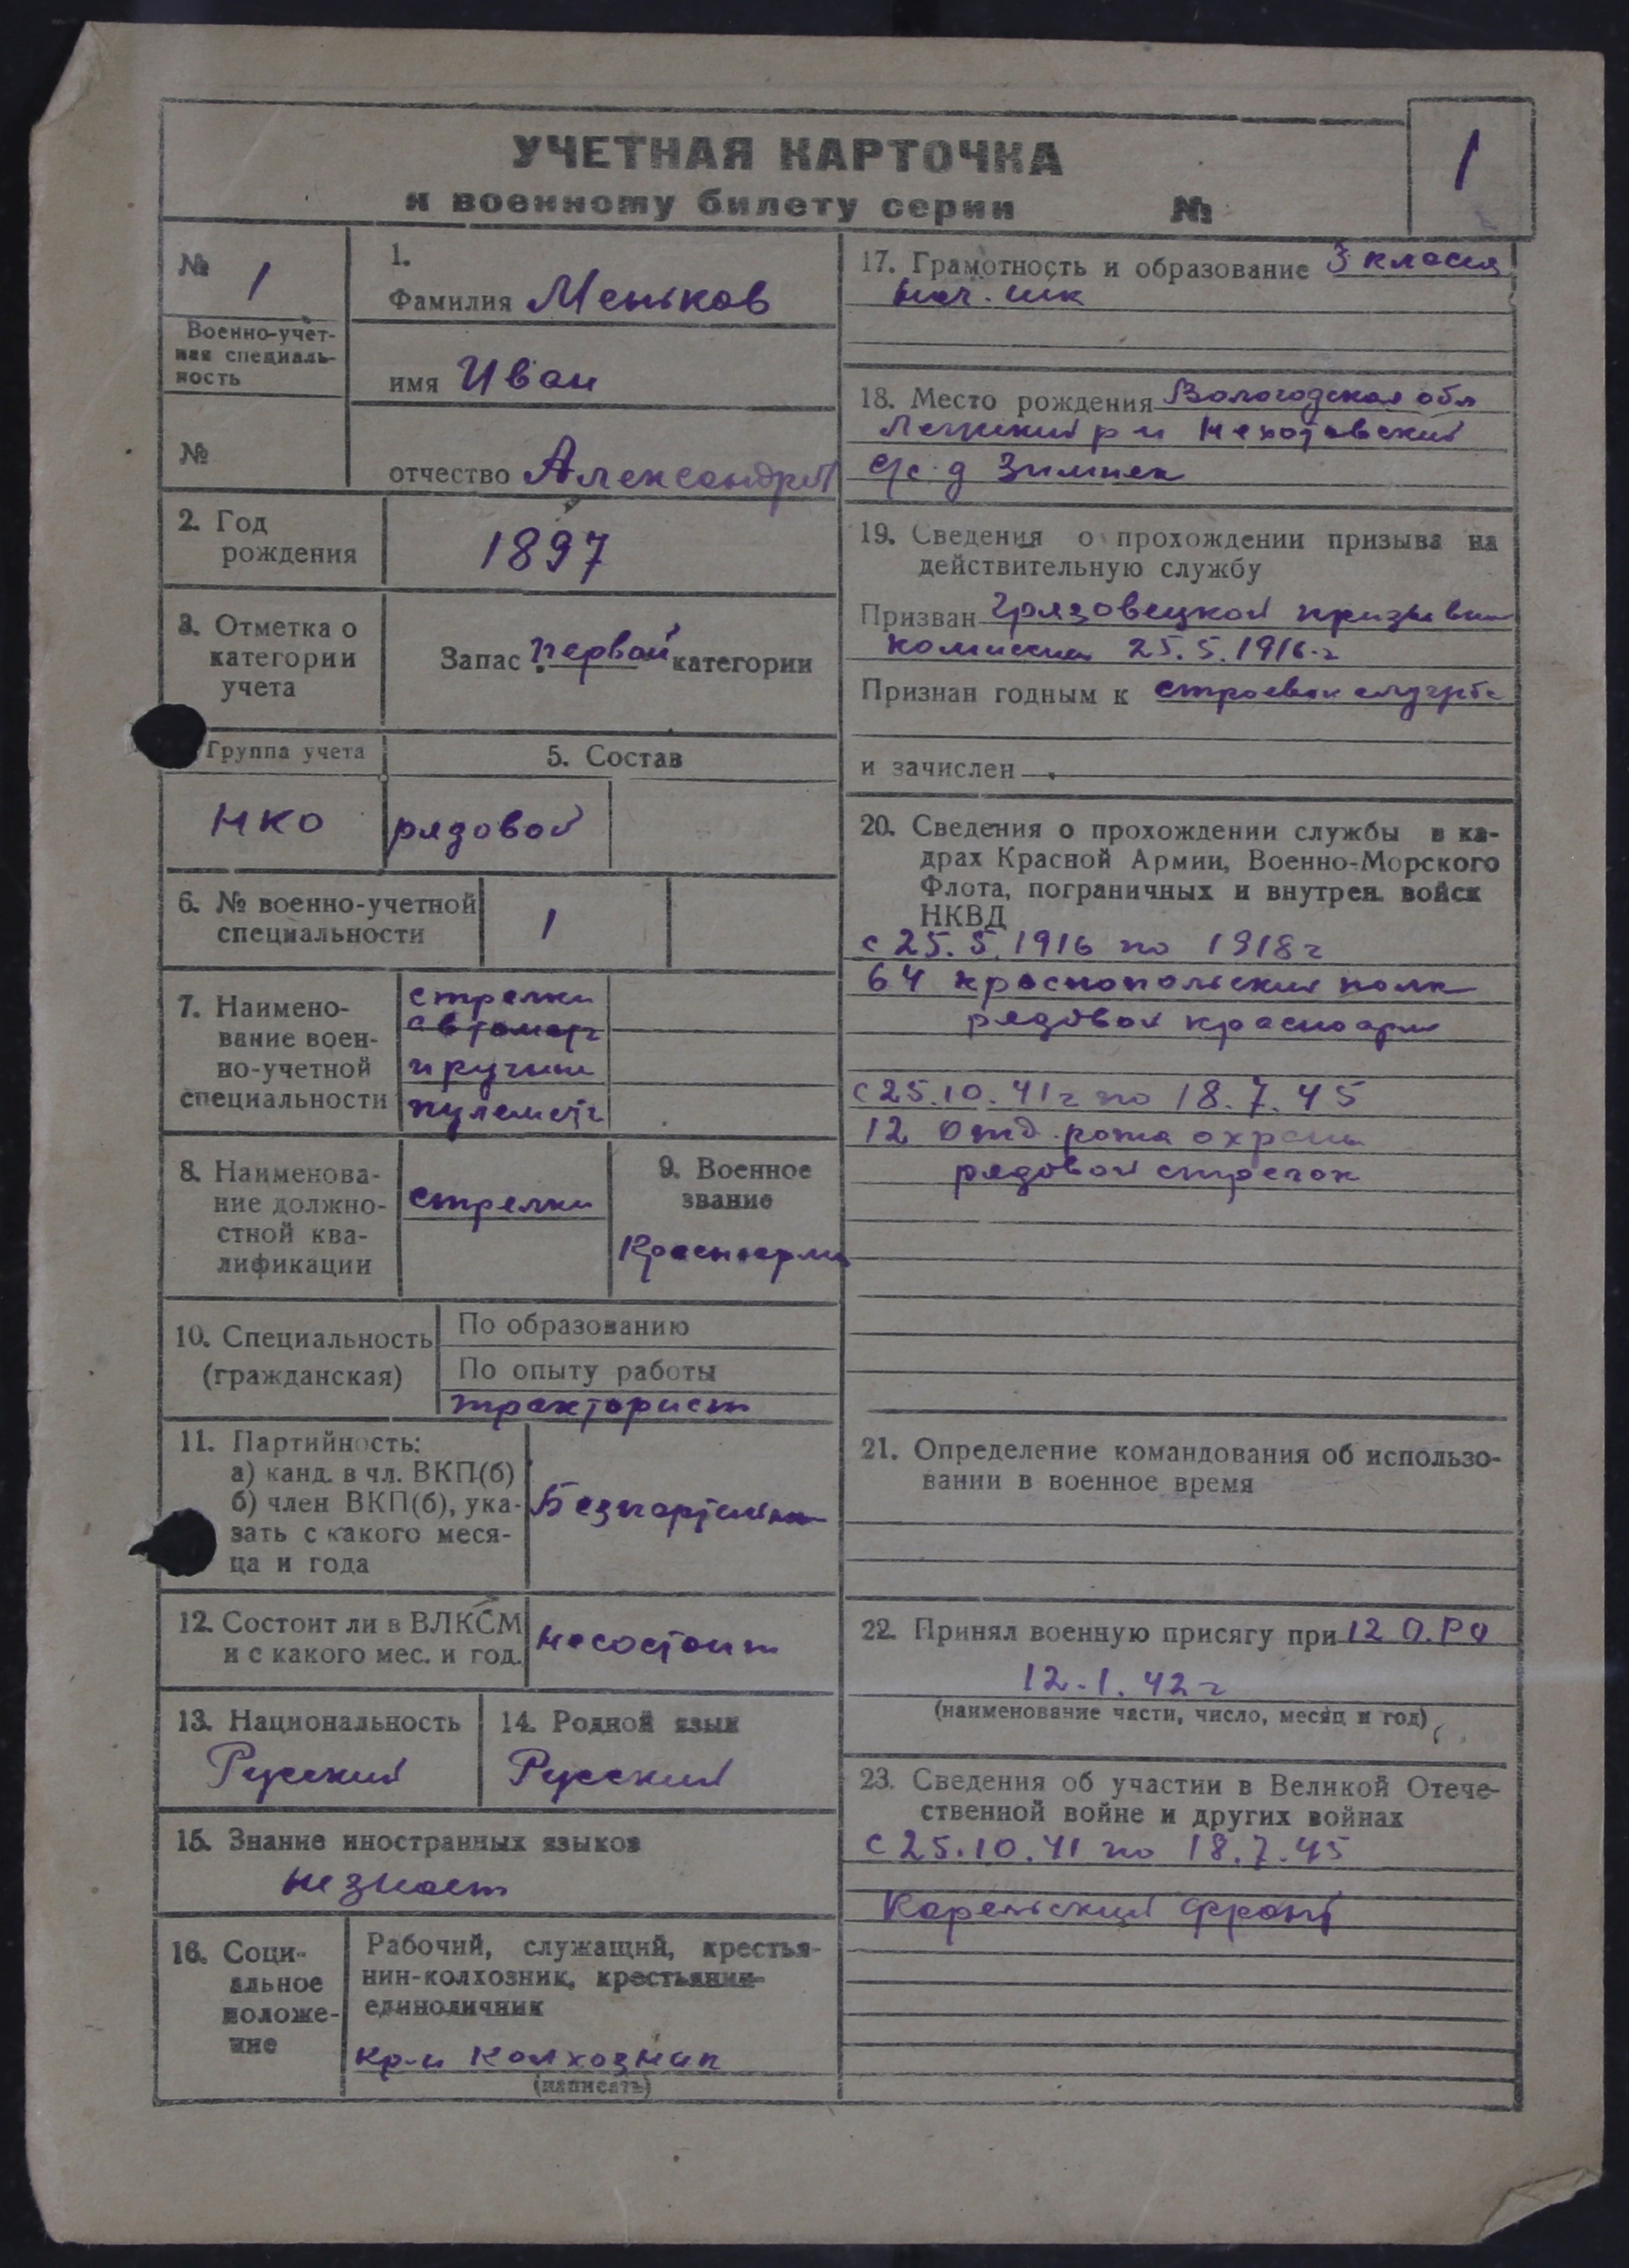 УЧЕТНАЯ КАРТОЧКА
к военному билету серии №
1
№ 1
Военно-учет-
ная специаль-
ность
№
1.
Фамилия Меньков
имя Иван
отчество Александров
2. Год
рождения
1897
3. Отметка о
категории
учета
Запас первой категории
Группа учета
НКО
5. Состав
рядовой
6. № военно-учетной
специальности
1
7. Наимено-
вание воен-
но-учетной
специальности
стрелки
автомат
и ручные
пулемет
8. Наименова-
ние должно-
стной ква-
лификации
стрелки
9. Военное
звание
Красноарм
10. Специальность
(гражданская)
По образованию
По опыту работы
тракторист
11. Партийность:
а) канд. в чл. ВКП(б)
б) член ВКП(б), ука-
зать с какого меся-
ца и года
Безпартийн
12. Состоит ли в ВЛКСМ
и с какого мес. и год.
не состоит
13. Национальность
Русский
14. Родной язык
Русский
15. Знание иностранных языков
не знает
16. Соци-
альное
положе-
ние
Рабочий, служащий, крестья-
нин-колхозник, крестьянин-
единоличник
кр-н колхозник
(написать)
17. Грамотность и образование 3 класса
нач. шк
18. Место рождения Вологодская обл
р н
с/с д Зимняк
19. Сведения о прохождении призыва на
действительную службу
Призван Грязовецкой призывн
комиссией 25.5.1916 г
Признан годным к строевой службе
и зачислен
20. Сведения о прохождении службы в ка-
драх Красной Армии, Военно-Морского
Флота, пограничных и внутрен. войск
НКВД
с 25.5.1916 по 1918 г
64 краснопольский полк
рядовой красноарм
с 25.10.41 г по 18.7.45
12 отд. рота охраны
рядовой стрелок
21. Определение командования об использо-
вании в военное время
22. Принял военную присягу при 12 О.РО
12.1.42 г
(наименование части, число, месяц и год)
23. Сведения об участии в Великой Отече-
ственной войне и других войнах
с 25.10.41 по 18.7.45
Карельский фронт